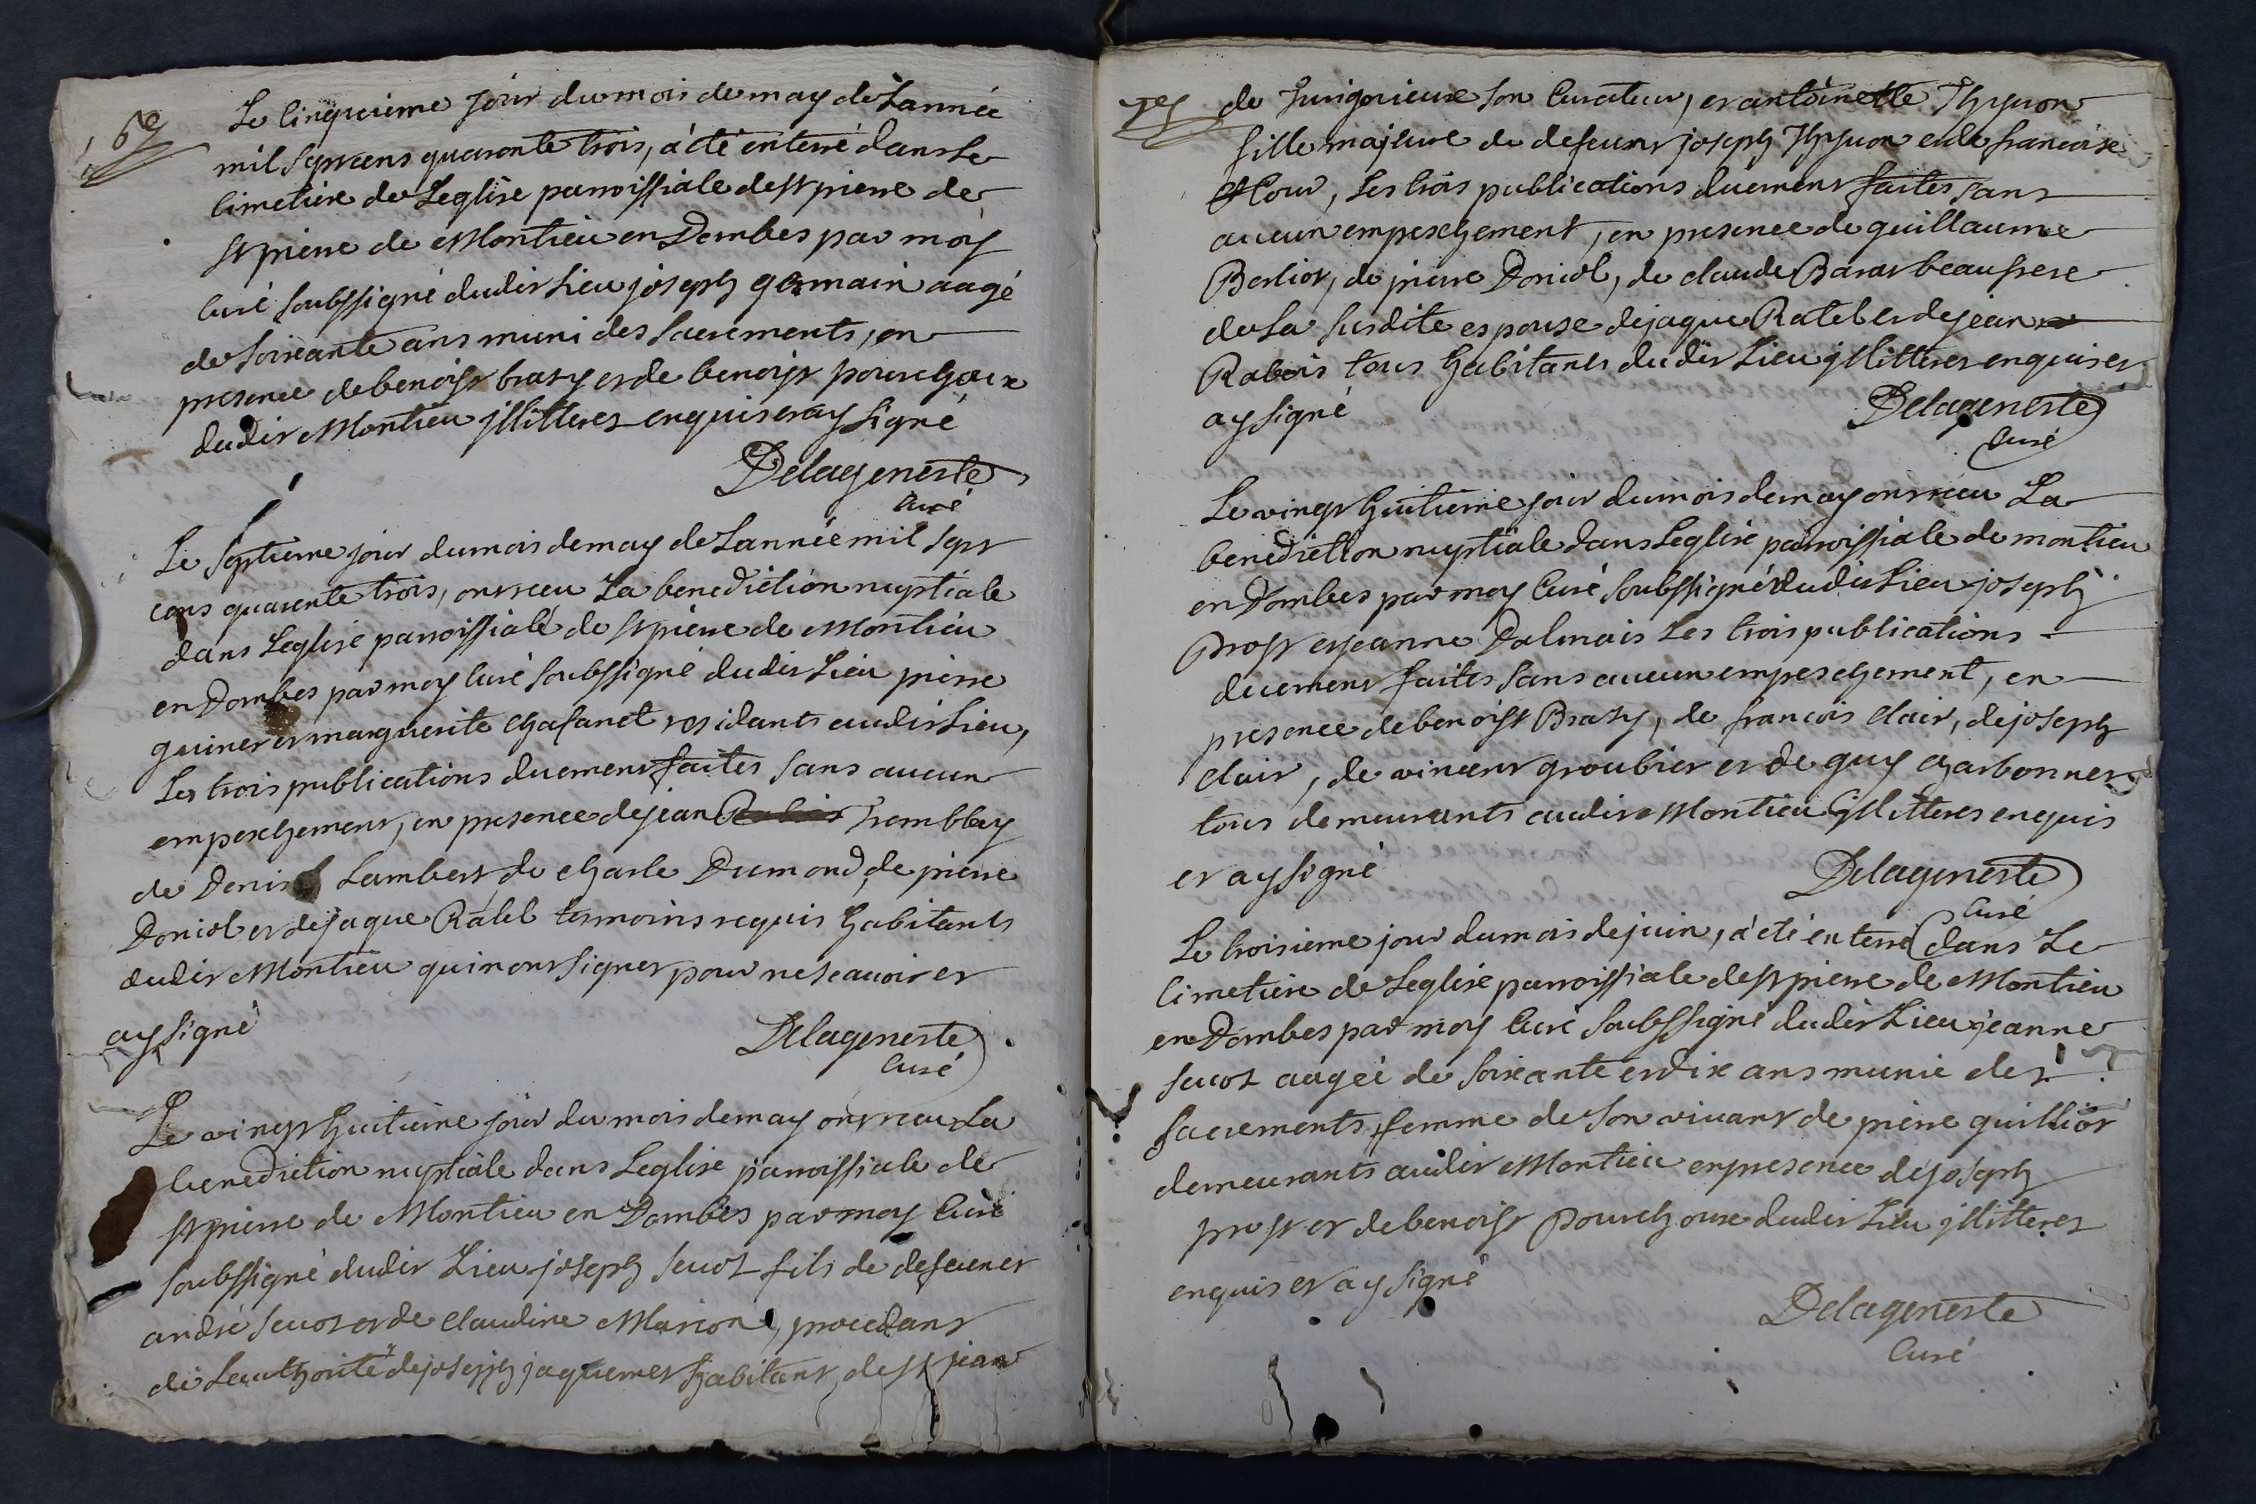 6e
Le cinquieme jour du mois de may de Lannée
mil sept cens quarente trois, a été enterré dans Le
cimetiere de Leglise parroissiale de st pierre de
st pierre de Montieu en Dombes par moy
curé soubssigné dudit Lieu joseph germain aagé
de soixante ans muni des sacrements, en
presence de benoist brasy et de benoist pourchoux
dudit Montieu jllitteres enquis et ay signé
Delageneste
curé
Le septieme jour du mois de may de Lannée mil sept
cens quarente trois, ont receu La benediction nuptiale
dans Leglise parroissiale de st pierre de Montieu
en Dombes par moy curé soubssigné dudit Lieu pierre
guinet et marguerite chafanet residants audit Lieu,
Les trois publications duement faites sans aucun
empeschement, en presence de jean Trembley
de Denis Lambert de charle Dumond, de pierre
Doriol et de jaque Ratel temoins requis habitants
dudit Montieu qui n'ont signer pour ne scavoir et
ay signé
Delageneste
curé
Le vingt huitieme jour du mois de may ont receu La
benediction nuptiale dans Leglise parroissiale de
st pierre de Montieu en Dombes par moy curé
soubssigné dudit Lieu joseph sucot fils de defeunct
andré sucot et de claudine Marion, procedant
de Lauthorité de joseph jaquemet habitant de st jean
7e
de Turigneieux son curateur, et antoinette Thyvon
fille majeure de defeunt joseph Thyvon et de francoise
Cour, Les trois publications duement faites sans
aucun empeschement, en presence de guillaume
Berliot, de pierre Doriol, de claude Barat beaufrere
de La susdite espouse de jaque Ratel et de jean
Rabois tous habitants dudit Lieu jllitteres enquis et
ay signé
Delageneste
curé
Le vingt huitieme jour du mois de may ont receu La
benediction nuptiale dans Leglise parroissiale de montieu
en Dombes par moy curé soubssigné dudit Lieu joseph
Prost et jeanne Dalmais Les trois publications
duement faites sans aucun empeschement, en
presence de benoist Brasy, de francois clair, de joseph
clair, de vincent groubier et de guy charbonnet
tous demeurants audit Montieu jllitteres enquis
et ay signé
Delageneste
curé
Le troisieme jour du mois de juin, a été enterré dans Le
cimetiere de Leglise parroissiale de st pierre de Montieu
en Dombes par moy curé soubssigné dudit Lieu jeanne
sucot aagée de soixante et dix ans munie des
sacrements, femme de son vivant de pierre guilliot
demeurants audit Montieu en presence de joseph
prost et de benoist Pourchoux dudit Lieu jllitteres
enquis et ay signé
Delageneste
curé